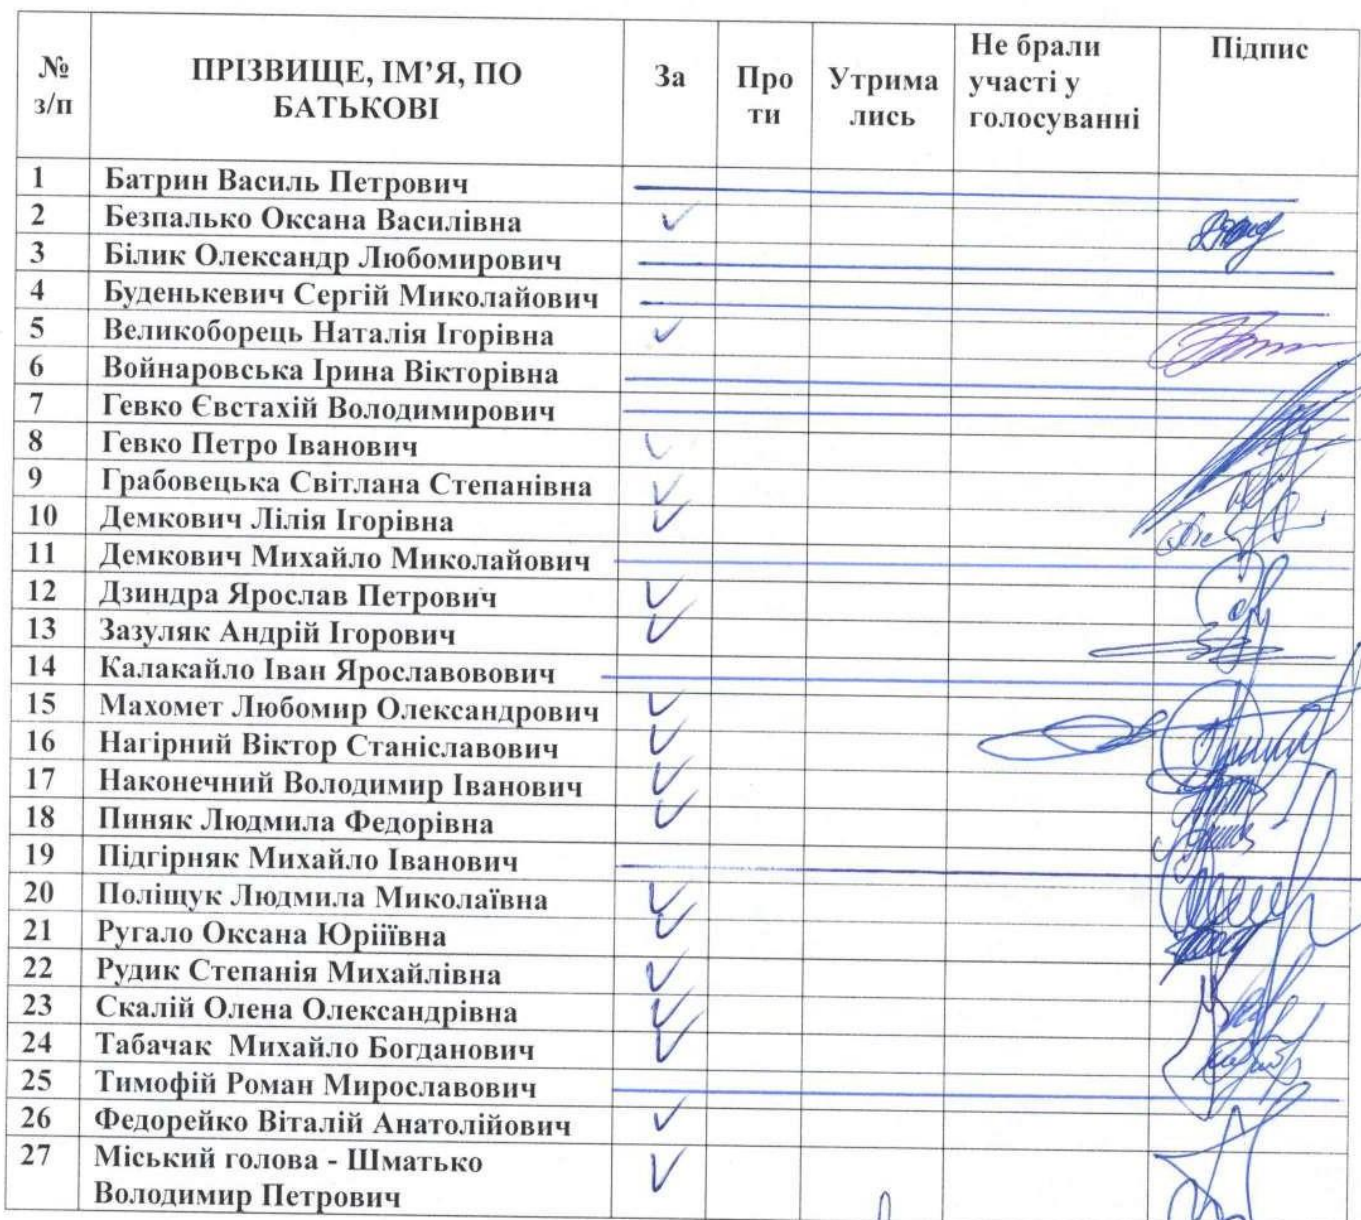 № з/п ПРІЗВИЩЕ, ІМ’Я, ПО БАТЬКОВІ За Про ти Утрима лись Не брали участі у голосуванні Підпис
1 Батрин Василь Петрович
2 Безпалько Оксана Василівна ✓
3 Білик Олександр Любомирович
4 Буденькевич Сергій Миколайович
5 Великоборець Наталія Ігорівна ✓
6 Войнаровська Ірина Вікторівна
7 Гевко Євстахій Володимирович
8 Гевко Петро Іванович ✓
9 Грабовецька Світлана Степанівна ✓
10 Демкович Лілія Ігорівна ✓
11 Демкович Михайло Миколайович
12 Дзиндра Ярослав Петрович ✓
13 Зазуляк Андрій Ігорович ✓
14 Калакайло Іван Ярославовович
15 Махомет Любомир Олександрович ✓
16 Нагірний Віктор Станіславович ✓
17 Наконечний Володимир Іванович ✓
18 Пиняк Людмила Федорівна ✓
19 Підгірняк Михайло Іванович
20 Поліщук Людмила Миколаївна ✓
21 Ругало Оксана Юріїївна ✓
22 Рудик Степанія Михайлівна ✓
23 Скалій Олена Олександрівна ✓
24 Табачак Михайло Богданович ✓
25 Тимофій Роман Мирославович
26 Федорейко Віталій Анатолійович ✓
27 Міський голова - Шматько ✓
Володимир Петрович